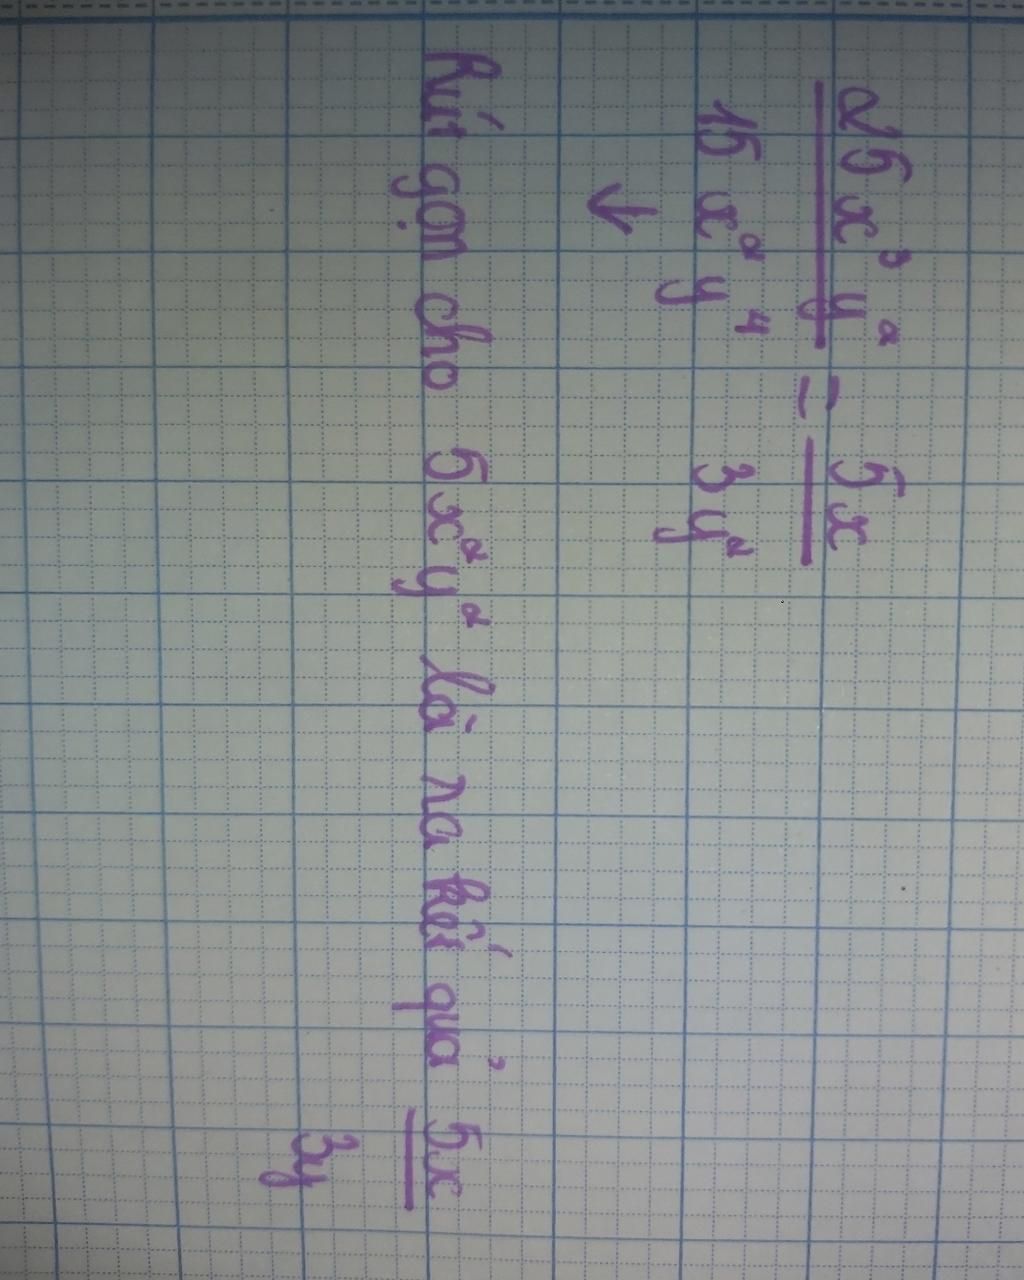 25x³y² / 15x²y⁴ = 5x / 3y²
↓
Rút gọn cho 5x²y² là ra kết quả 5x / 3y